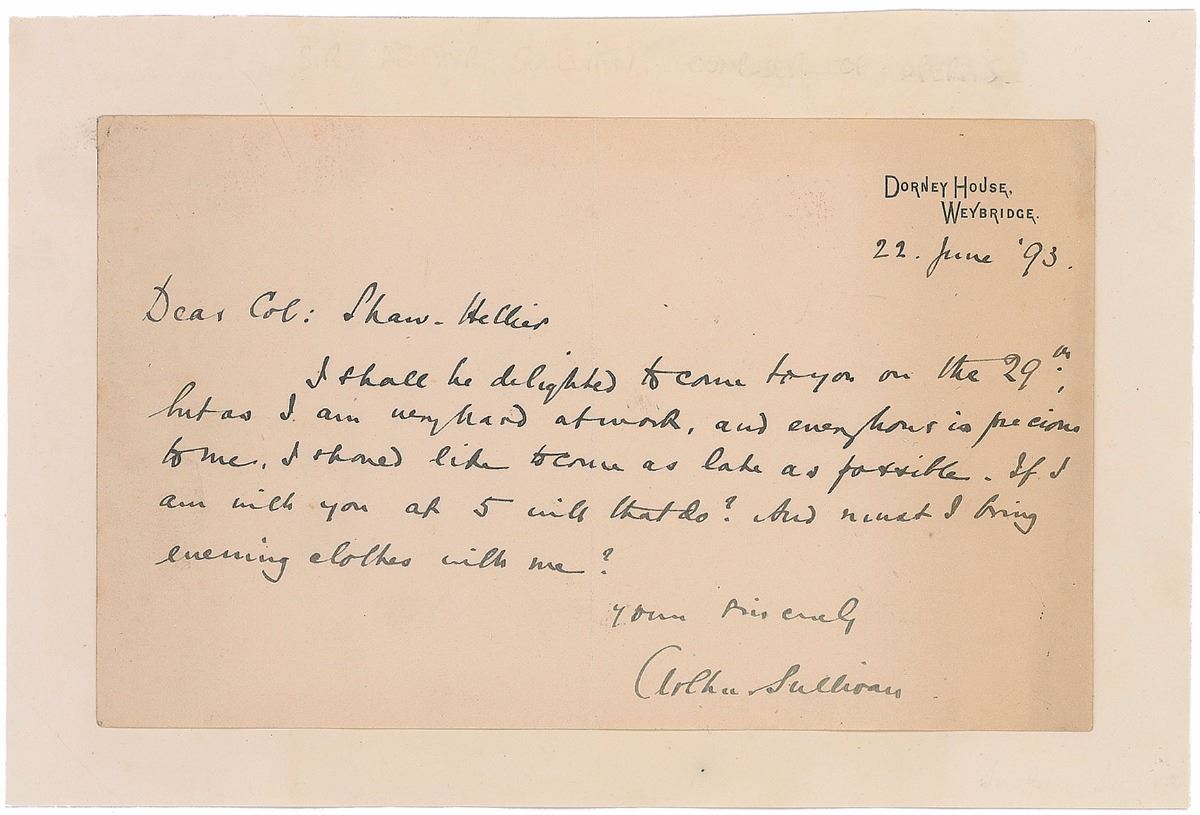 DORNEY HOUSE,
WEYBRIDGE.
22. June '93.
Dear Col: Shaw-Hellier
I shall be delighted to come to you on the 29th;
but as I am very hard at work, and every hour is precious
to me, I should like to come as late as possible. If I
am with you at 5 will that do? And must I bring
evening clothes with me?
Yours sincerely
Arthur Sullivan